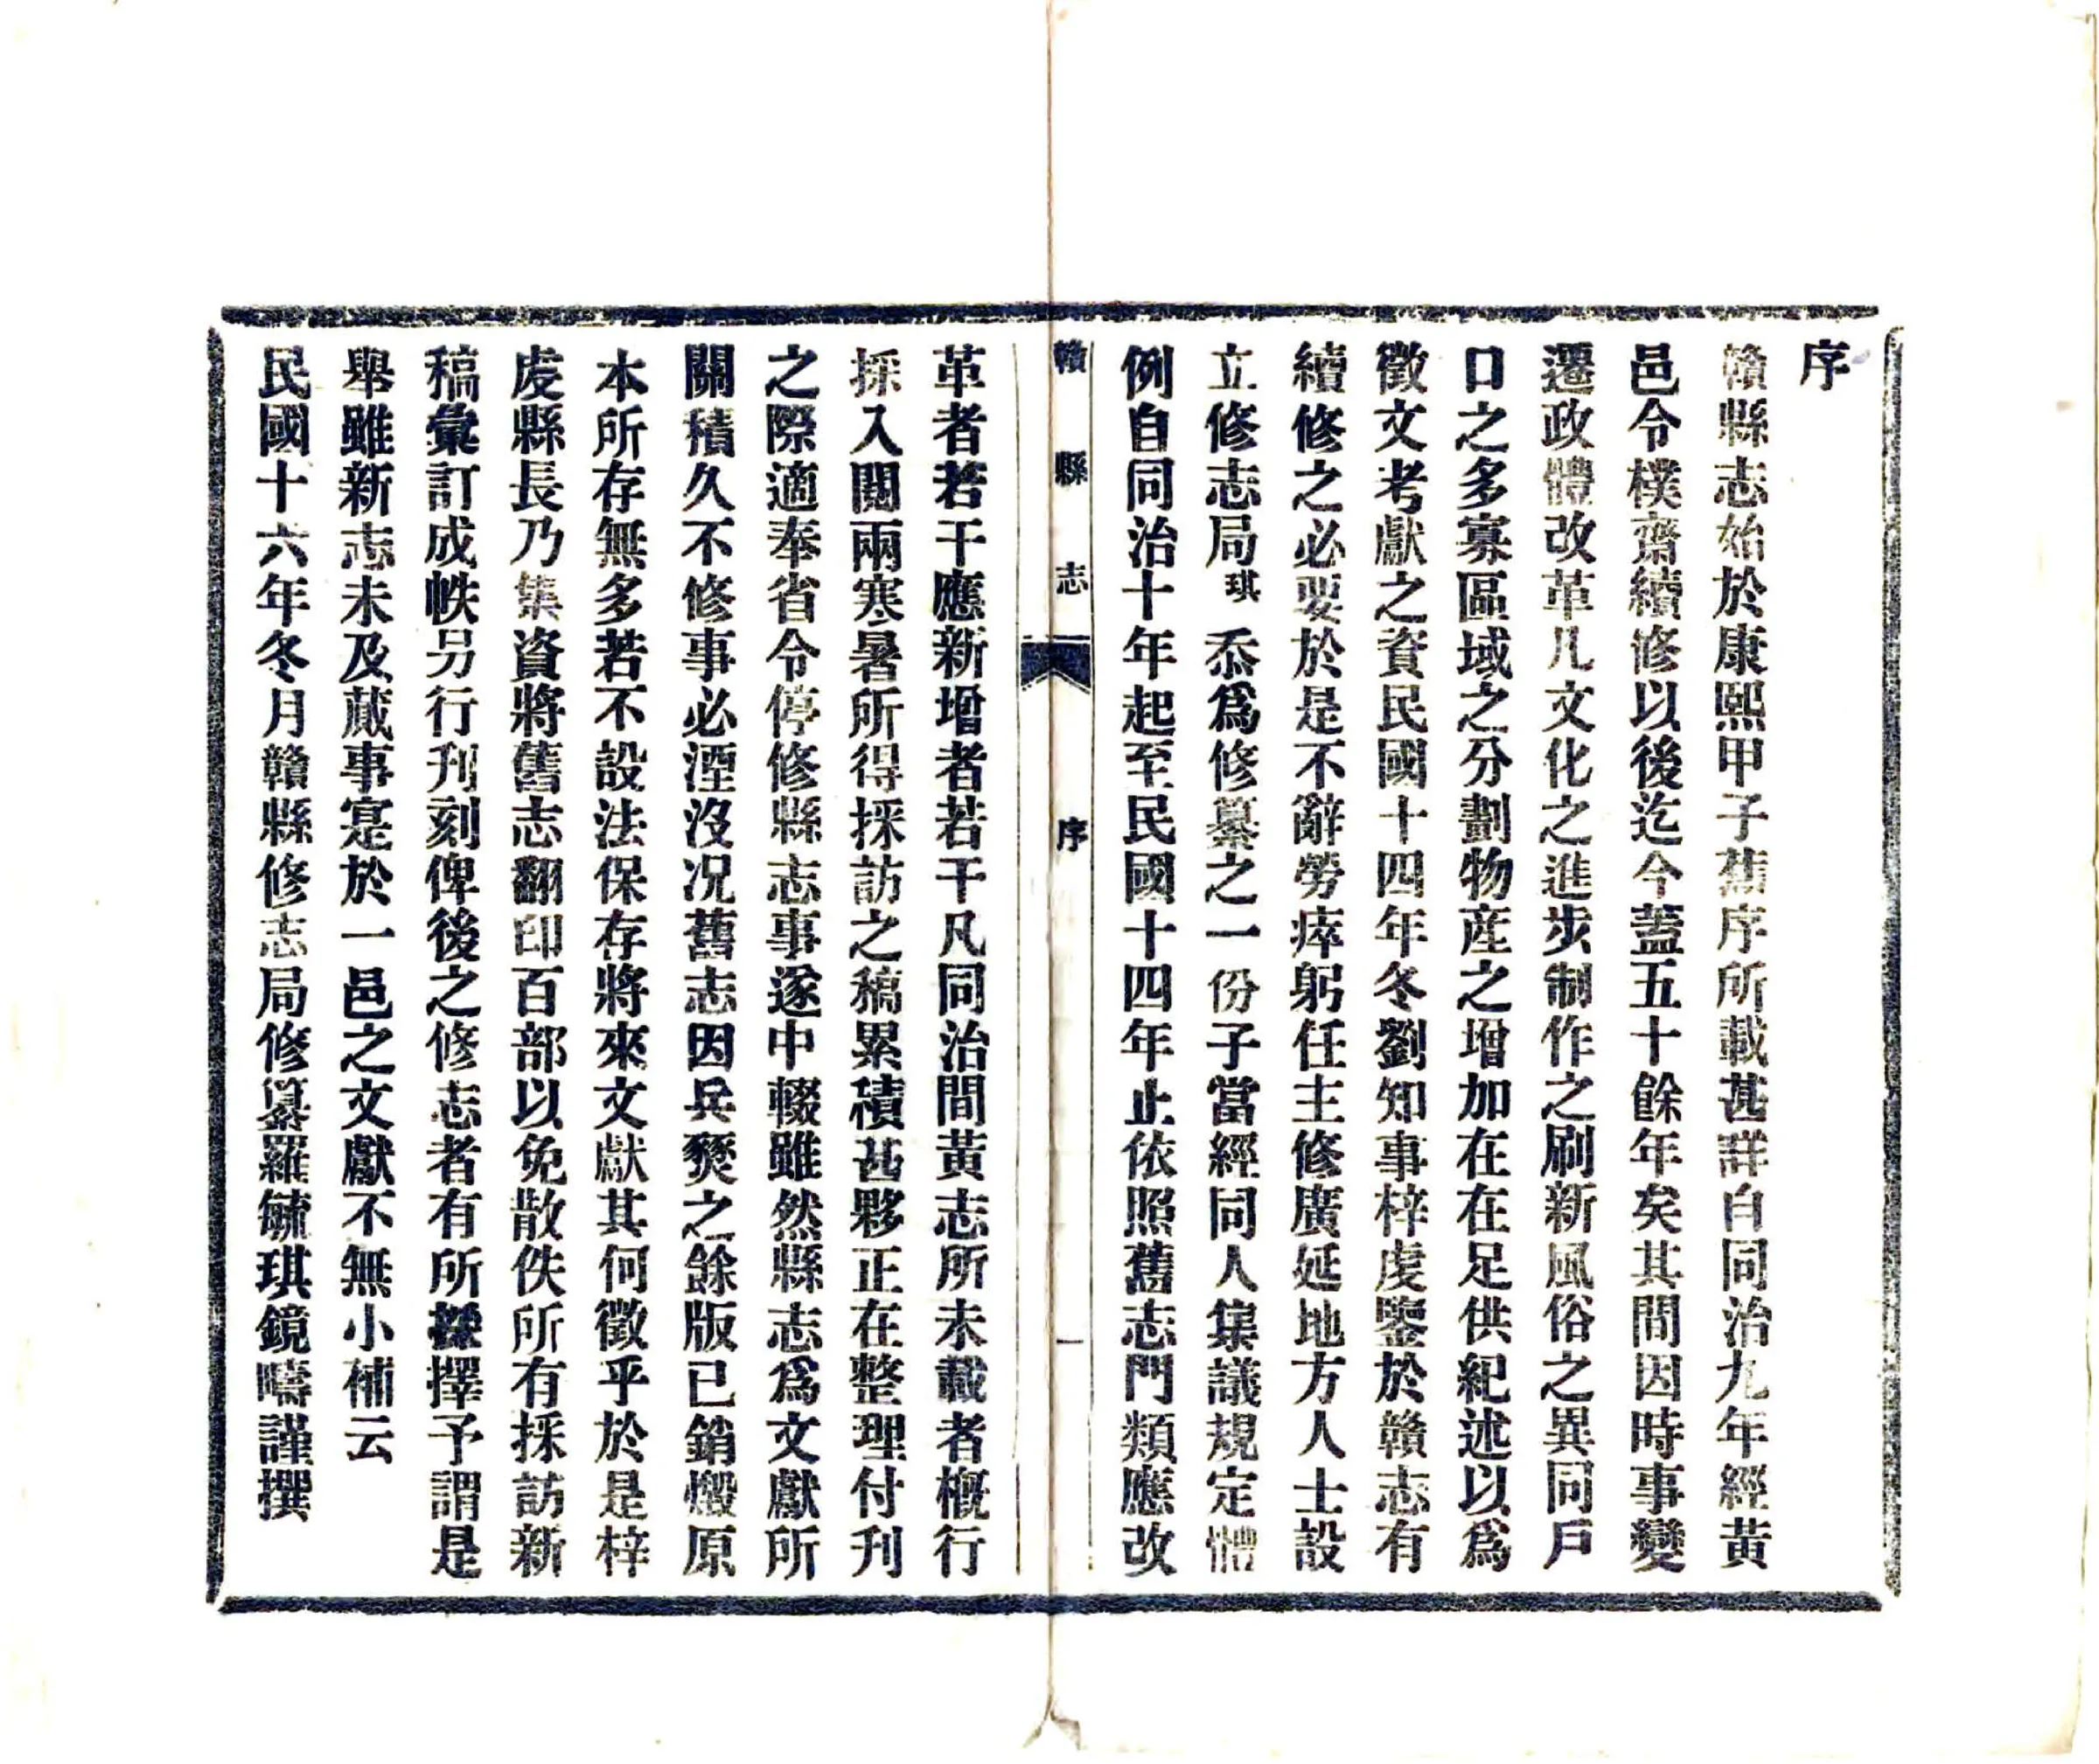 序
贛縣志始於康熙甲子舊序所載甚詳自同治九年經黃
邑令樸齋續修以後迄今蓋五十餘年矣其間因時事變
遷政體改革凡文化之進步制作之刷新風俗之異同戶
口之多寡區域之分劃物産之增加在在足供紀述以爲
徵文考獻之資民國十四年冬劉知事梓虔鑒於贛志有
續修之必要於是不辭勞瘁躬任主修廣延地方人士設
立修志局琪忝爲修纂之一份子當經同人集議規定體
例自同治十年起至民國十四年止依照舊志門類應改
贛縣志 序 一
革者若干應新增者若干凡同治間黃志所未載者槪行
採入閱兩寒暑所得採訪之稿累積甚夥正在整理付刊
之際適奉省令停修縣志事遂中輟雖然縣志爲文獻所
關積久不修事必湮沒况舊志因兵燹之餘版已銷燬原
本所存無多若不設法保存將來文獻其何徵乎於是梓
虔縣長乃集資將舊志翻印百部以免散佚所有採訪新
稿彙訂成帙另行刋刻俾後之修志者有所採擇予謂是
舉雖新志未及蕆事寔於一邑之文獻不無小補云
民國十六年冬月贛縣修志局修纂羅毓琪鏡疇謹撰